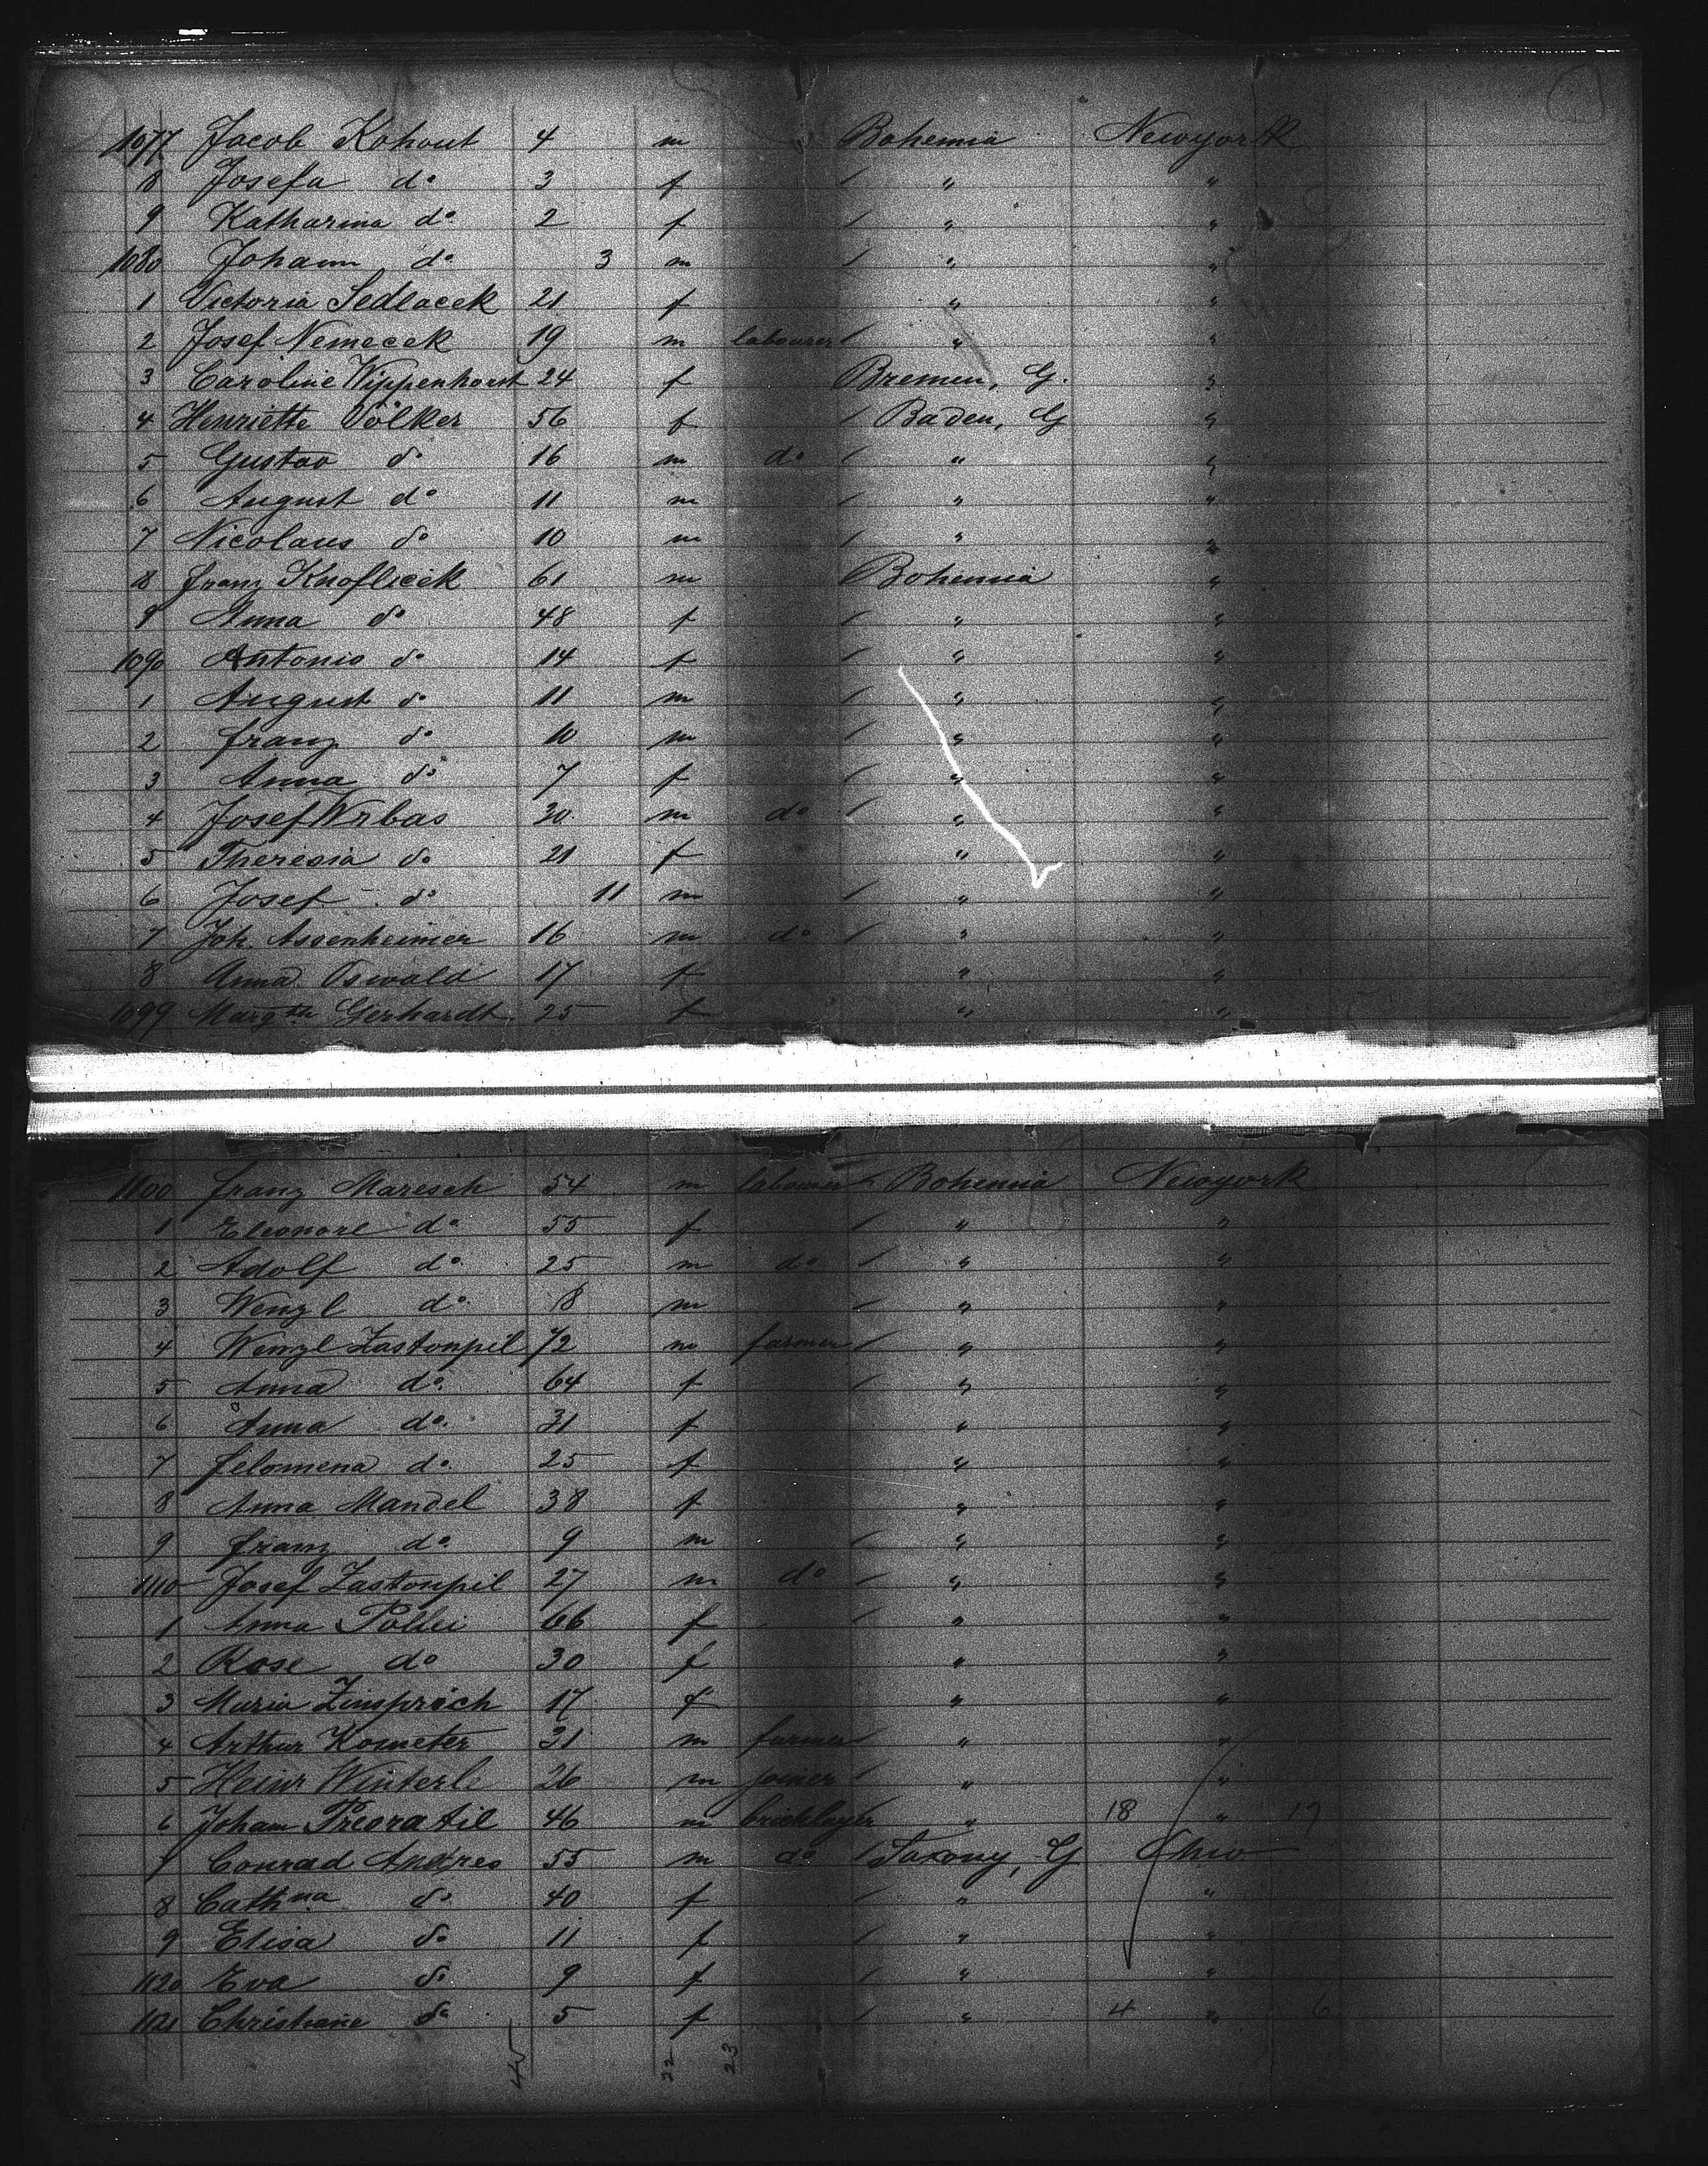 1077 Jacob Kohout 4 m Bohemia Newyork
8 Josefa do 3 f " "
9 Katharina do 2 f " "
1080 Johann do 3 m " "
1 Victoria Sedlacek 21 f " "
2 Josef Nemecek 19 m labourer " "
3 Caroline Wippenhorst 24 f Bremen, G. "
4 Henriette Völker 56 f Baden, G "
5 Gustav do 16 m do " "
6 August do 11 m " "
7 Nicolaus do 10 m " "
8 Franz Knoflicek 61 m Bohemia "
9 Anna do 48 f " "
1090 Antonio do 14 f " "
1 August do 11 m " "
2 Franz do 10 m " "
3 Anna do 7 f " "
4 Josef Wrbas 30 m do " "
5 Theresia do 21 f " "
6 Josef do 11 m " "
7 Joh. Assenheimer 16 m do " "
8 Anna Oswald 17 f " "
1099 Margth Gerhardt 25 f " "
1100 Franz Maresch 54 m labourer Bohemia Newyork
1 Eleonore do 55 f " "
2 Adolf do 25 m do " "
3 Wenzl do 18 m " "
4 Wenzl Zastoupil 72 m farmer " "
5 Anna do. 64 f " "
6 Anna do. 31 f " "
7 Filomena do. 25 f " "
8 Anna Mandel 38 f " "
9 Franz do. 9 m " "
1110 Josef Zastoupil 27 m do " "
1 Anna 66 f " "
2 Rose do 30 f " "
3 Maria 17 f " "
4 Arthur Kometer 31 m farmer " "
5 Heinr Winterle 26 m joiner " "
6 Johann 46 m bricklayer " 18 "
7 Conrad Andres 55 m do Saxony, G Ohio
8 Cathna do 40 f " "
9 Elisa do 11 f " "
1120 Eva do 9 f " "
1121 Christiane do 5 f " 4 " 6
45 22 23